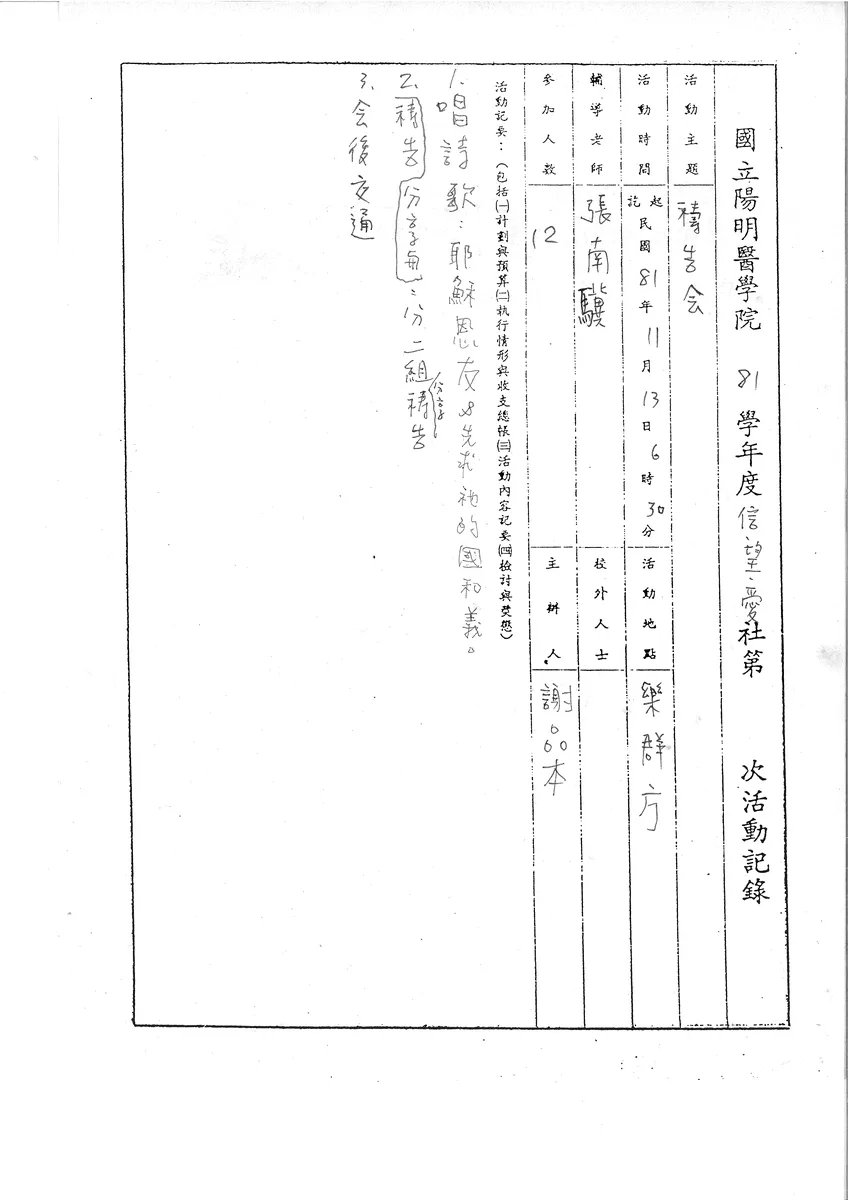 國立陽明醫學院 81 學年度信望愛社第 次活動記錄
活動主題 禱告会
活動時間 起訖 民國81年11月13日6時30分 活動地點 樂群廳
輔導老師 張南驥 校外人士
參加人數 12 主辦人 謝品本
活動記要：（包括㈠計劃與預算㈡執行情形與收支總帳㈢活動內容記要㈣檢討與獎懲）
1. 唱詩歌：耶穌恩友 & 先求祂的國和義。
2. 禱告（分享與）：分二組分享禱告
3、会後交通